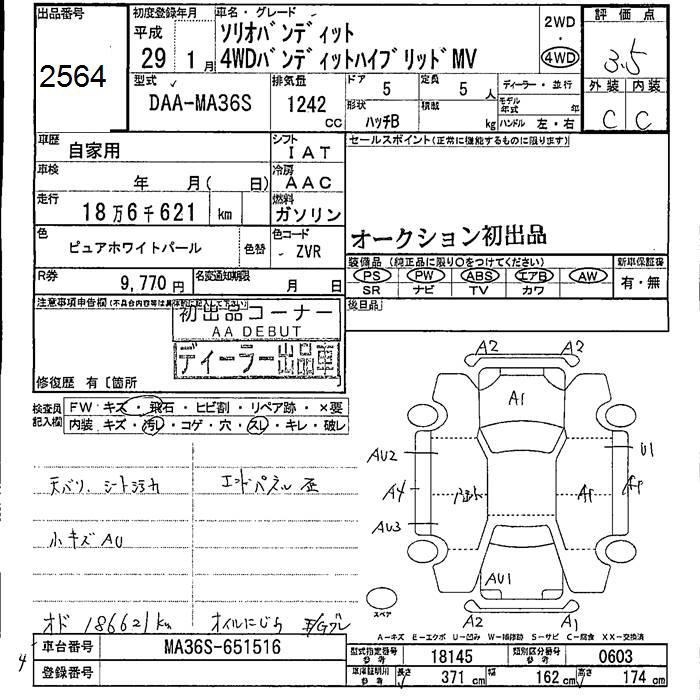 出品番号
2564
初度登録年月
平成
29 1月
車名・グレード
ソリオバンディット
4WDバンディットハイブリッドMV
2WD
・
4WD
評価点
3.5
外装 内装
C C
型式
DAA-MA36S
排気量
1242
cc
ドア
5
定員
5人
形状
ハッチB
積載
kg
ディーラー・並行
モデル年式 年
ハンドル 左・右
車歴
自家用
シフト
IAT
車検
年 月( 日)
冷房
AAC
走行
18万6千621 km
燃料
ガソリン
色
ピュアホワイトパール
色替
色コード
ZVR
R券
9,770円
名変通知期限
月 日
セールスポイント(正常に機能するものに限ります)
オークション初出品
装備品 (純正品に限り○をつけてください)
PS PW ABS エアB AW
SR ナビ TV カワ
新車保証書
有・無
後日品
注意事項申告欄(不具合内容等は具体的に記入して下さい)
初出品コーナー
AA DEBUT
ディーラー出品車
修復歴 有〔箇所
検査員記入欄
FW キズ・飛石・ヒビ割・リペア跡・×要
内装 キズ・汚レ・コゲ・穴・スレ・キレ・破レ
天バリ、シート汚れ
エンドパネル歪
小キズ AU
オド 186621km
オイルにじみ
A2 A2
A1
AU2
U1
A4
AU3
AU1
A2 A1
スペア
A−キズ E−エクボ U−凹み W−補修跡 S−サビ C−腐食 XX−交換済
4
車台番号
MA36S-651516
登録番号
型式指定番号
参考
18145
類別区分番号
参考
0603
車庫証明用
参考
長さ
371 cm
幅
162 cm
高さ
174 cm